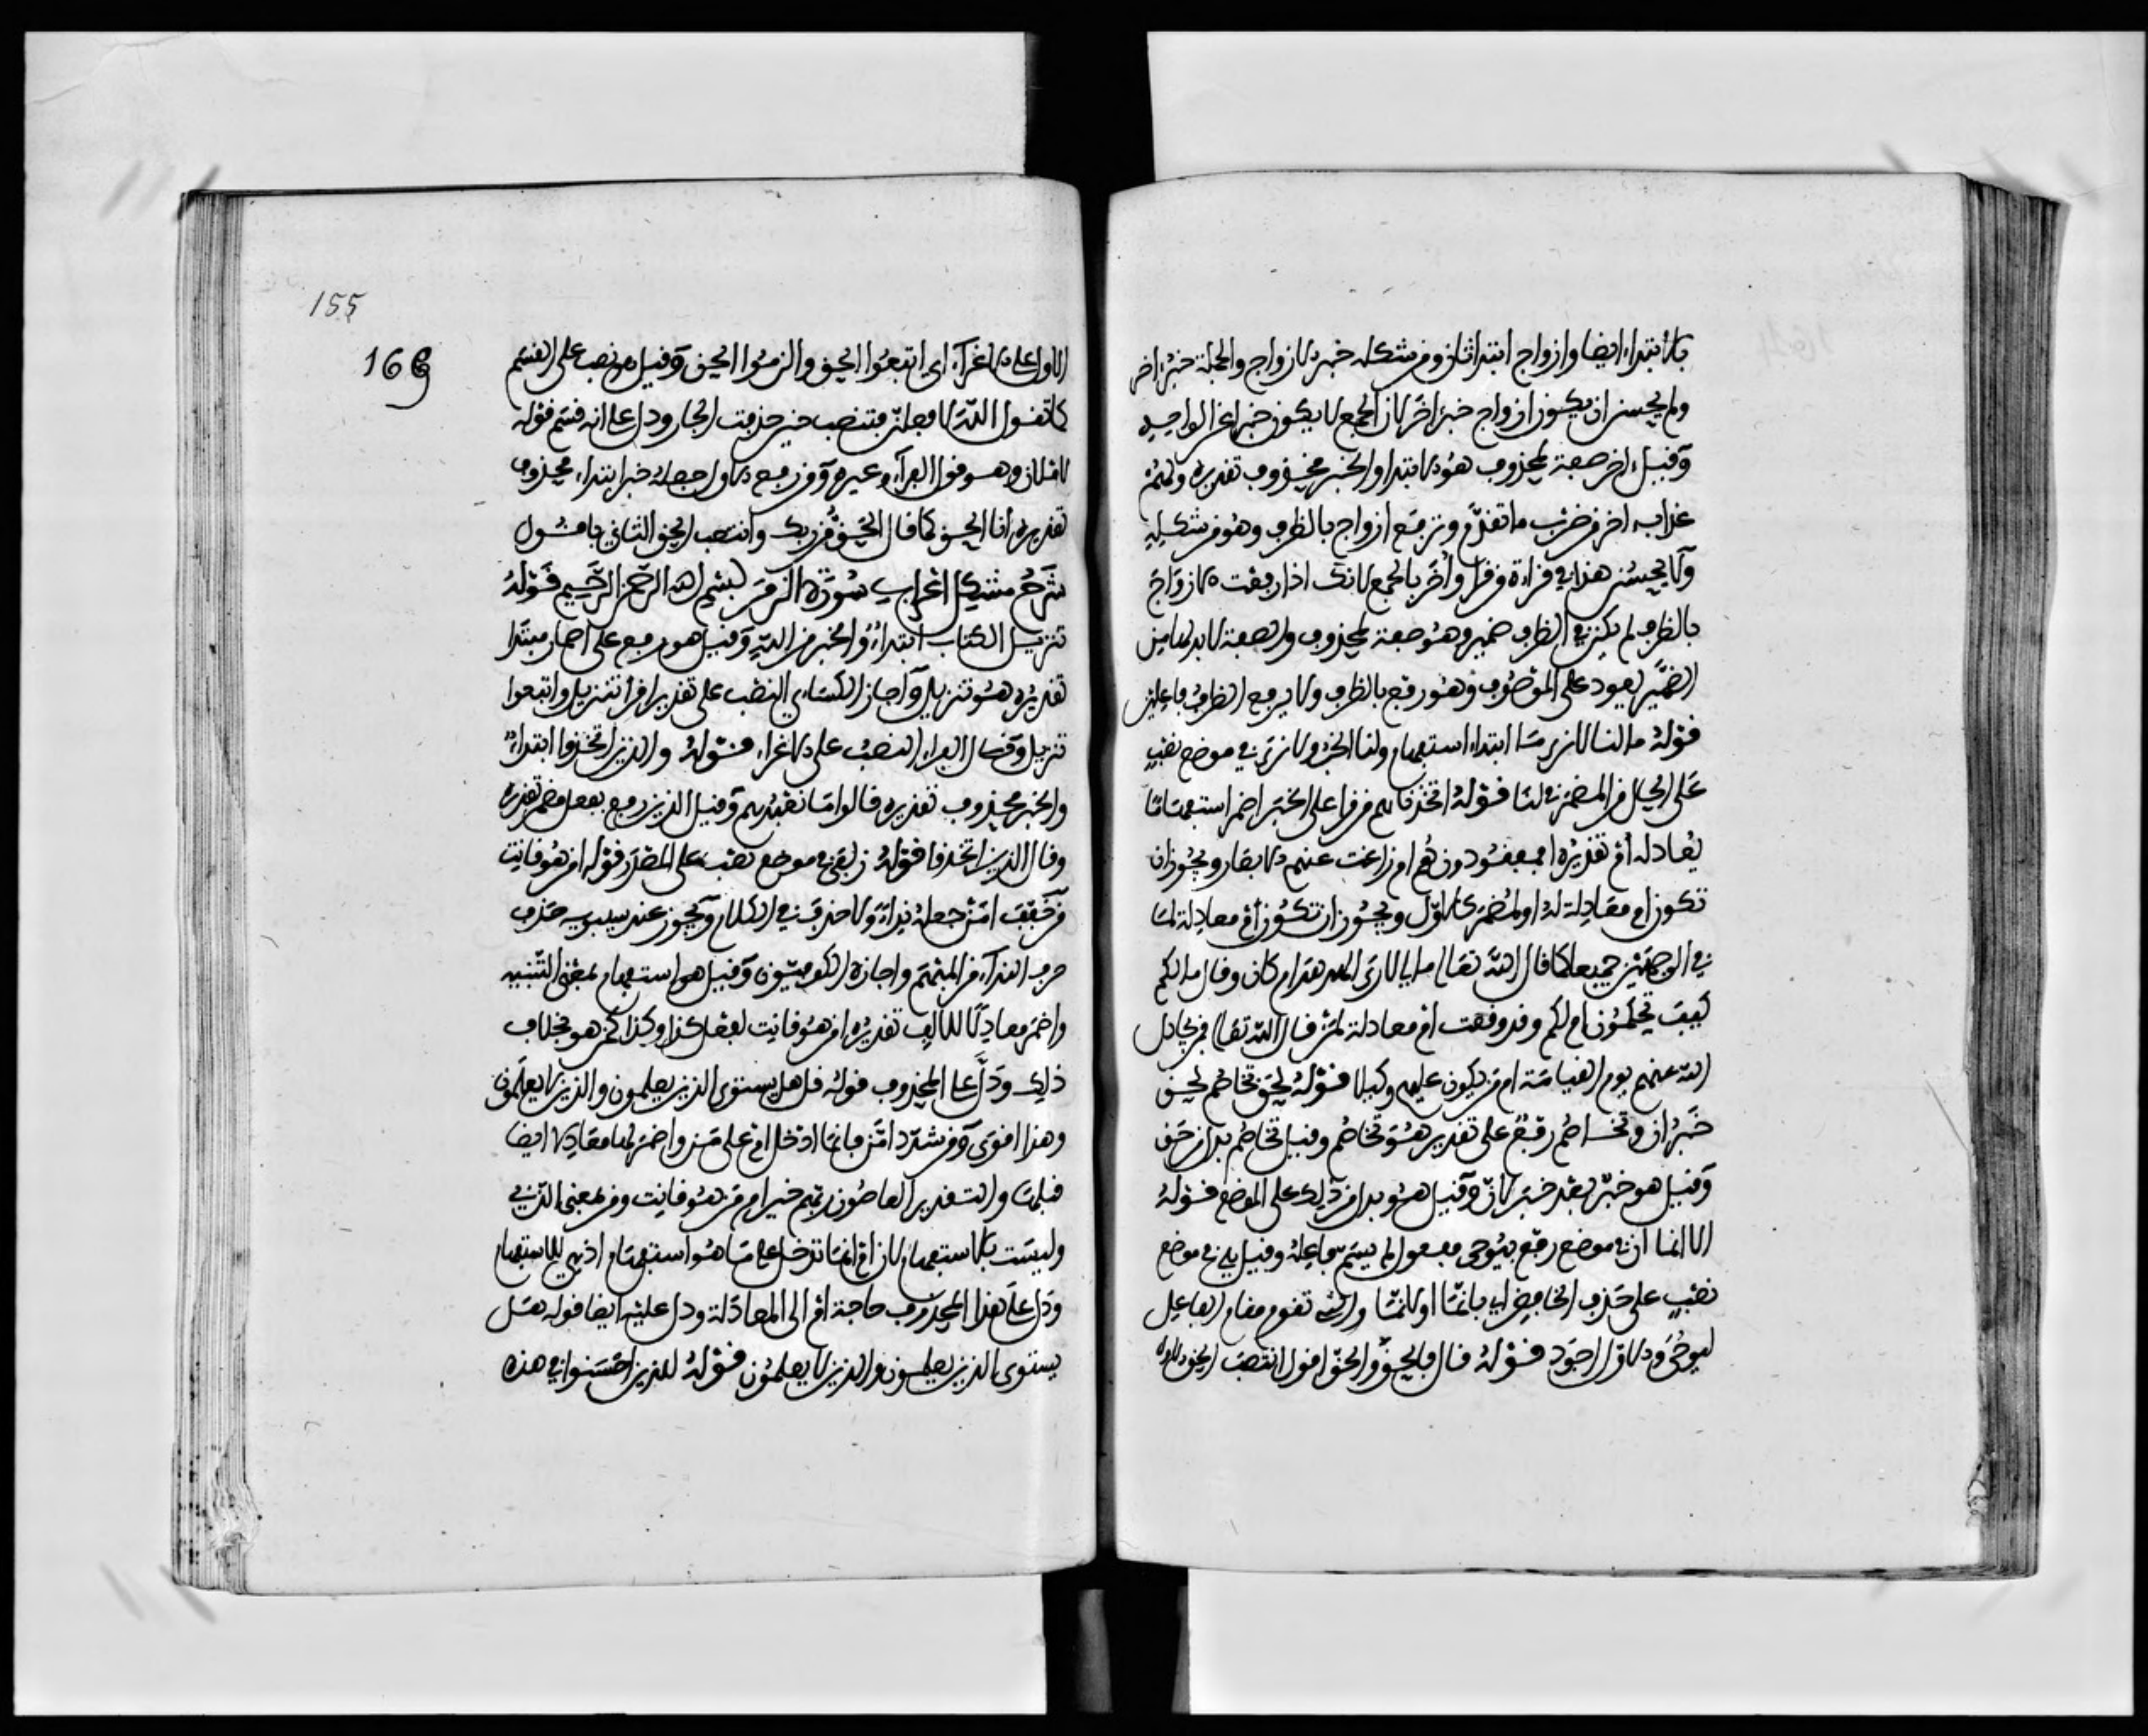 بالابتداء ايضا وازواج ابتدا ثان ومن شكله خبر الازواج والجملة خبر اخر
ولم يحسن ان يكون ازواج خبرا اخر لان الجمع لا يكون خبرا عن الواحد
وقيل اخر صفة لمحذوف هو الابتدا والخبر محذوف تقديره ولهم
عذاب اخر من ضرب ما تقدم وترفع ازواج بالظرف وهو من شكله
ولا يحسن هذا في قراءة من قرا وأخر بالجمع لانك اذا رفعت الازواج
بالظرف لم يكن في الظرف ضمير وهو صفة لمحذوف والصفة لا بد لها من
ضمير يعود على الموصوف وهو رفع بالظرف ولا يرفع الظرف فاعلين
قوله ما لنا لا نرى ما ابتداء استفهام ولنا الخبر ولا نرى في موضع نصب
على الحال من المضمر في لنا قوله اتخذناهم من قرا على الخبر اضمر استفهاما
يعادله أم تقديره امفقودون هم ام زاغت عنهم الابصار ويجوز ان
تكون ام معادلة لما او لمضمر كالاول ويجوز ان تكون أم معادلة لما
في الوجهين جميعا كما قال الله تعالى ما لي لا ارى الهدهد ام كان وقال ما لكم
كيف تحكمون ام لكم وقد وقعت ام معادلة لمن قال الله تعالى فمن يجادل
الله عنهم يوم القيامة ام من يكون عليهم وكيلا قوله لحق تخاصم لحق
خبر ان وتخاصم رفع على تقدير هو تخاصم وقيل تخاصم بدل من حق
وقيل هو خبر بعد خبر لان وقيل هو بدل من ذلك على الموضع قوله
الا انما ان في موضع رفع بيوحى مفعول لم يسم فاعله وقيل هي في موضع
نصب على حذف الخافض اي بانما او لانما والي تقوم مقام الفاعل
ليوحى والاول اجود قوله قال فالحق والحق اقول انتصب الحق الاول
155
169
الاول على الاغراء اي اتبعوا الحق والزموا الحق وقيل هو نصب على القسم
كما تقول الله لافعلن فتنصب حين حذفت الجار ودل على انه قسم قوله
لاملان وهو قول الفراء وغيره ومن رفع الاول جعله خبر ابتداء محذوف
تقديره انا الحق كما قال الحق من ربك وانتصب الحق الثاني باقول
شرح مشكل اعراب سورة الزمر بسم الله الرحمن الرحيم قوله
تنزيل الكتاب ابتداء والخبر من الله وقيل هو رفع على اضمار مبتدا
تقديره هو تنزيل واجاز الكسائي النصب على تقدير اقرا تنزيل واتبعوا
تنزيل وقال الفراء النصب على الاغراء قوله والذين اتخذوا ابتداء
والخبر محذوف تقديره قالوا ما نعبدهم وقيل الذين رفع بفعل مضمر تقديره
وقال الذين اتخذوا قوله زلفى في موضع نصب على المصدر قوله امن هو قانت
من خفف امن جعله نداء ولا حذف في الكلام ويجوز عند سيبويه حذف
حرف النداء من المبهم واجازه الكوفيون وقيل هو استفهام بمعنى التنبيه
واضمر معادلا للالف تقديره امن هو قانت يفعل كذا وكذا كمن هو بخلاف
ذلك ودل على المحذوف قوله قل هل يستوي الذين يعلمون والذين لا يعلمون
وهذا اقوى ومن شدد امن فانما ادخل ام على من واضمر لها معادلا ايضا
قبلها والتقدير العاصون ربهم خير ام من هو قانت ومن بمعنى الذي
وليست بالاستفهام لان ام انما تدخل على ما هو استفهام اذ هي للاستفهام
ودل على هذا المحذوف حاجة ام الى المعادلة ودل عليه ايضا قوله هل
يستوي الذين يعلمون والذين لا يعلمون قوله للذين احسنوا في هذه